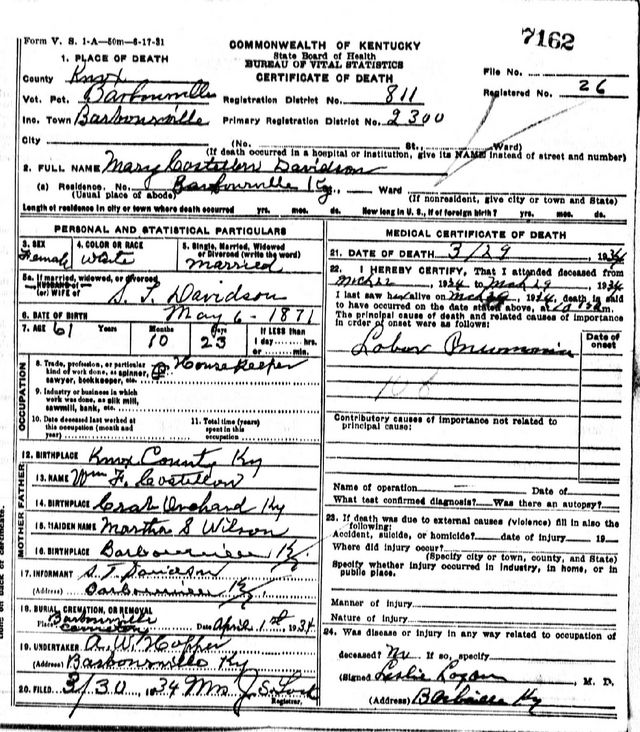 Form V. S. 1-A—50m—6-17-31
7162
COMMONWEALTH OF KENTUCKY
State Board of Health
BUREAU OF VITAL STATISTICS
CERTIFICATE OF DEATH
1. PLACE OF DEATH
County Knox
Vot. Pct. Barbourville
Inc. Town Barbourville
Registration District No. 811
Primary Registration District No. 2300
File No.
Registered No. 26
City (No. St., Ward)
(If death occurred in a hospital or institution, give its NAME instead of street and number)
2. FULL NAME Mary Costellon Davidson
(a) Residence. No. Barbourville Ky., Ward
(Usual place of abode) (If nonresident, give city or town and State)
Length of residence in city or town where death occurred yrs. mos. ds. How long in U. S., if of foreign birth? yrs. mos. ds.
PERSONAL AND STATISTICAL PARTICULARS
3. SEX Female
4. COLOR OR RACE White
5. Single, Married, Widowed or Divorced (write the word) Married
5a. If married, widowed, or divorced
HUSBAND of
(or) WIFE of S. T. Davidson
6. DATE OF BIRTH May 6 - 1871
7. AGE 61 Years Months 10 Days 23 If LESS than
1 day hrs.
or min.
OCCUPATION
8. Trade, profession, or particular kind of work done, as spinner, sawyer, bookkeeper, etc. Housekeeper
9. Industry or business in which work was done, as silk mill, sawmill, bank, etc.
10. Date deceased last worked at this occupation (month and year)
11. Total time (years) spent in this occupation
12. BIRTHPLACE Knox County Ky
FATHER
13. NAME Wm F. Costellon
14. BIRTHPLACE Crab Orchard Ky
MOTHER
15. MAIDEN NAME Martha S Wilson
16. BIRTHPLACE Barbourville Ky
17. INFORMANT S. T. Davidson
(Address) Barbourville Ky
18. BURIAL, CREMATION, OR REMOVAL
Place Barbourville Cemetery Date April 1st 1934
19. UNDERTAKER A. W. Hopper
(Address) Barbourville Ky
20. FILED 3/30 1934 Mrs J. S. Lock
Registrar.
MEDICAL CERTIFICATE OF DEATH
21. DATE OF DEATH 3/29 1934
22. I HEREBY CERTIFY, That I attended deceased from
Mch 22 1934 to Mch 29 1934
I last saw her alive on Mch 29 1934, death is said
to have occurred on the date stated above, at m.
The principal cause of death and related causes of importance
in order of onset were as follows:
Date of onset
Lobar Pneumonia
108
Contributory causes of importance not related to
principal cause:
Name of operation Date of
What test confirmed diagnosis? Was there an autopsy?
23. If death was due to external causes (violence) fill in also the
following:
Accident, suicide, or homicide? date of injury 19
Where did injury occur?
(Specify city or town, county, and State)
Specify whether injury occurred in industry, in home, or in
public place.
Manner of injury
Nature of injury
24. Was disease or injury in any way related to occupation of
deceased? No If so, specify
(Signed Leslie Logan, M. D.
(Address) Barbville Ky
on back of certificate.